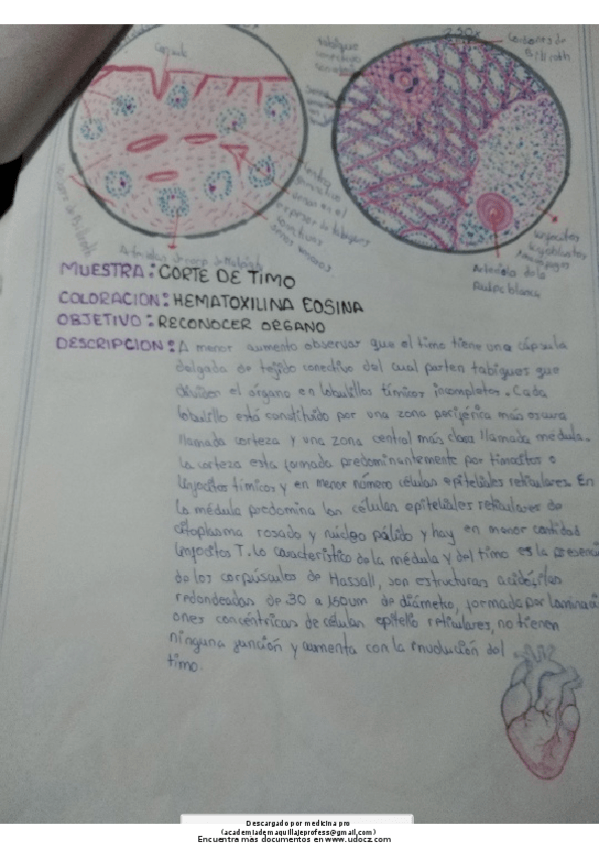 Capsula
250x
Cordones de
Billroth
tabique
Centro
germinativo
Linfocitos
linfoblastos
macrofagos
Arteriola de la
Pulpa blanca
MUESTRA: CORTE DE TIMO
COLORACION: HEMATOXILINA EOSINA
OBJETIVO: RECONOCER ORGANO
DESCRIPCION: A menor aumento observar que el timo tiene una cápsula
delgada de tejido conectivo del cual parten tabiques que
dividen el órgano en lobulillos tímicos incompletos. Cada
lobulillo está constituido por una zona periférica más oscura
llamada corteza y una zona central más clara llamada médula.
La corteza esta formada predominantemente por timocitos o
linfocitos tímicos y en menor número células epiteliales reticulares. En
la médula predomina las células epiteliales reticulares de
citoplasma rosado y núcleo pálido y hay en menor cantidad
linfocitos T. Lo característico de la médula y del timo es la presenci
de los corpúsculos de Hassall, son estructuras acidófilas
redondeadas de 30 a 150um de diámetro, formada por laminaci
ones concéntricas de células epitelio reticulares, no tienen
ninguna función y aumenta con la involución del
timo.
Descargado por medicina pro
(academiademaquillajeprofess@gmail.com)
Encuentra mas documentos en www.udocz.com